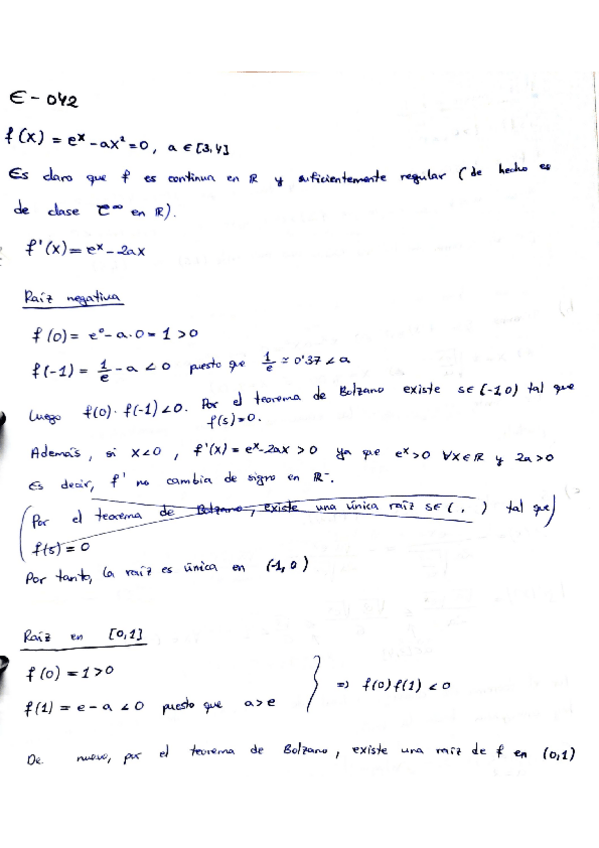 E-042
f(x) = eˣ - ax² = 0, a ∈ [3,4]
Es claro que f es continua en ℝ y suficientemente regular (de hecho es
de clase C^∞ en ℝ).
f'(x) = eˣ - 2ax
Raíz negativa
f(0) = e⁰ - a·0 = 1 > 0
f(-1) = 1/e - a < 0 puesto que 1/e ≃ 0'37 < a
Luego f(0)·f(-1) < 0. Por el teorema de Bolzano existe s ∈ (-1,0) tal que
f(s) = 0.
Además, si x < 0, f'(x) = eˣ - 2ax > 0 ya que eˣ > 0 ∀x ∈ ℝ y 2a > 0
Es decir, f' no cambia de signo en ℝ⁻.
(Por el teorema de Bolzano, existe una única raíz s ∈ ( , ) tal que)
f(s) = 0
Por tanto, la raíz es única en (-1,0)
Raíz en [0,1]
f(0) = 1 > 0
f(1) = e - a < 0 puesto que a > e } => f(0)f(1) < 0
De nuevo, por el teorema de Bolzano, existe una raíz de f en (0,1)